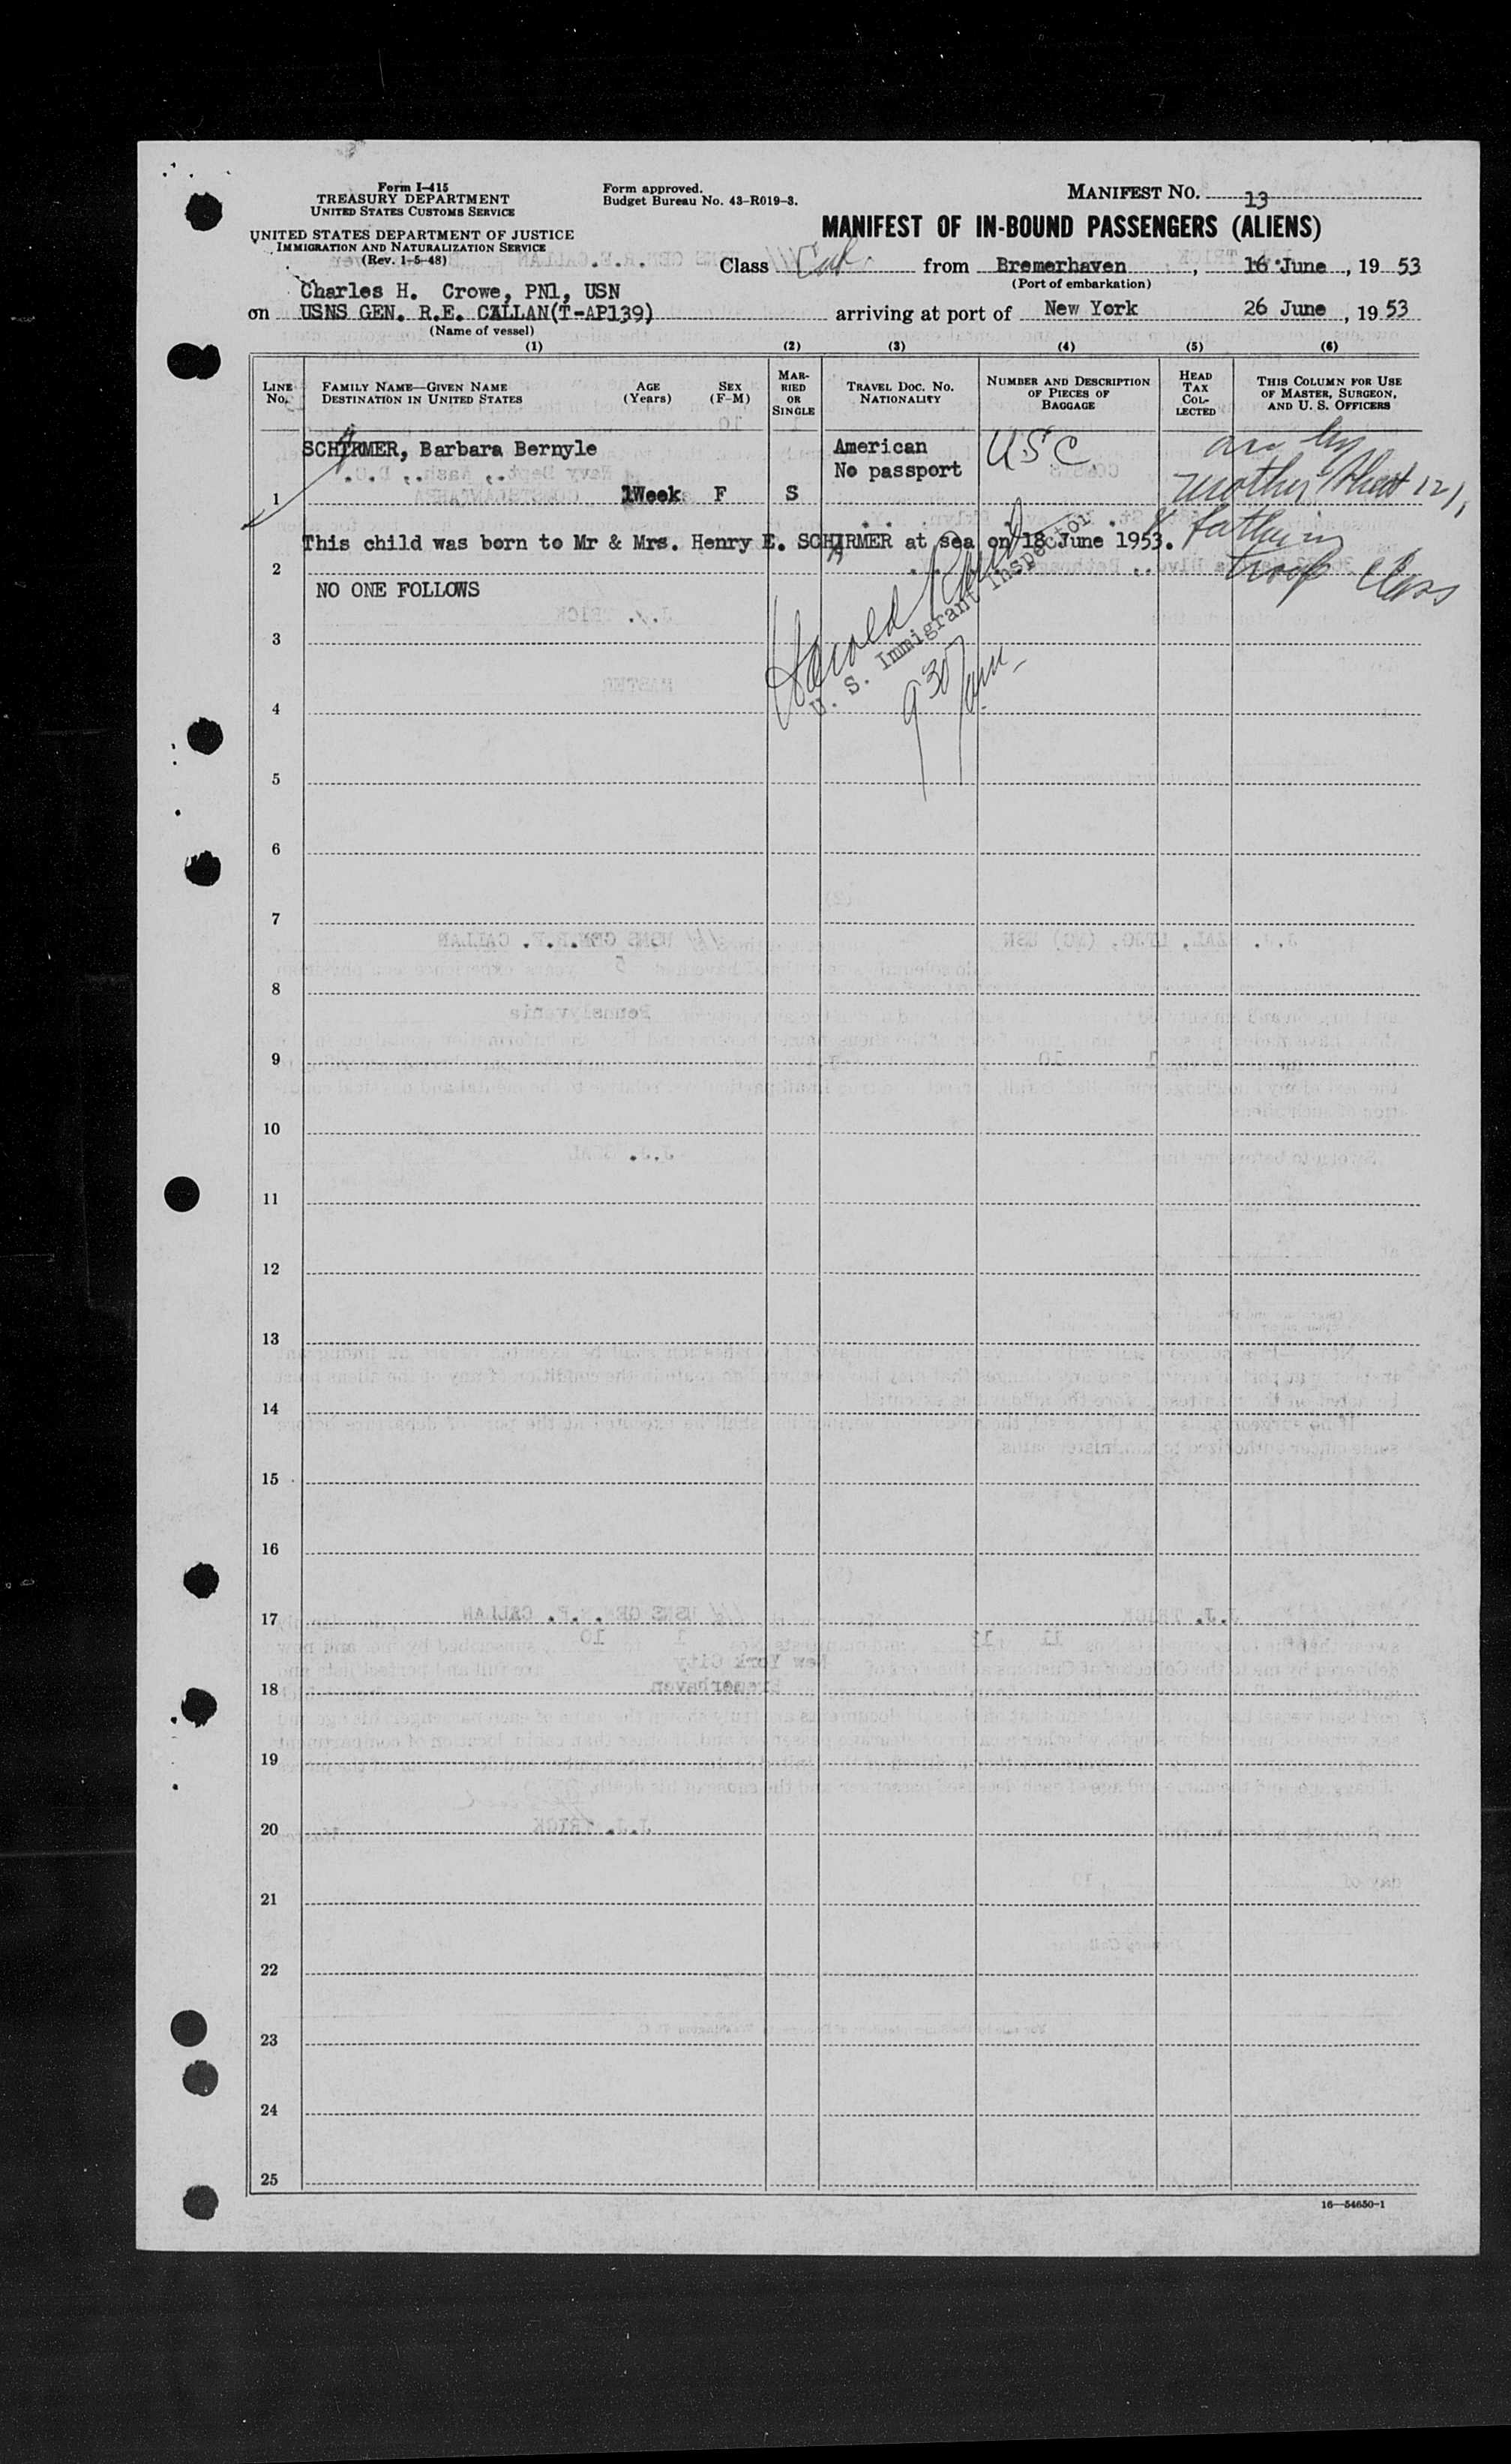 Form I-415
TREASURY DEPARTMENT
UNITED STATES CUSTOMS SERVICE
UNITED STATES DEPARTMENT OF JUSTICE
IMMIGRATION AND NATURALIZATION SERVICE
(Rev. 1-5-48)
Form approved.
Budget Bureau No. 43-R019-3.
MANIFEST NO. 13
MANIFEST OF IN-BOUND PASSENGERS (ALIENS)
Class from Bremerhaven, 16 June, 1953
(Port of embarkation)
Charles H. Crowe, PN1, USN
on USNS GEN. R.E. CALLAN(T-AP139) arriving at port of New York 26 June, 1953
(Name of vessel)
(1) (2) (3) (4) (5) (6)
LINE No. FAMILY NAME—GIVEN NAME DESTINATION IN UNITED STATES AGE (Years) SEX (F-M) MARRIED OR SINGLE TRAVEL DOC. NO. NATIONALITY NUMBER AND DESCRIPTION OF PIECES OF BAGGAGE HEAD TAX COLLECTED THIS COLUMN FOR USE OF MASTER, SURGEON, AND U. S. OFFICERS
SCHIRMER, Barbara Bernyle American USC
No passport
1 1Week F S
mother sheet 12/1
This child was born to Mr & Mrs. Henry E. SCHIRMER at sea on 18 June 1953.
father in
troop class
2
NO ONE FOLLOWS
Harold
U. S. Immigrant Inspector
930 am
3
4
5
6
7
8
9
10
11
12
13
14
15
16
17
18
19
20
21
22
23
24
25
16—54650-1